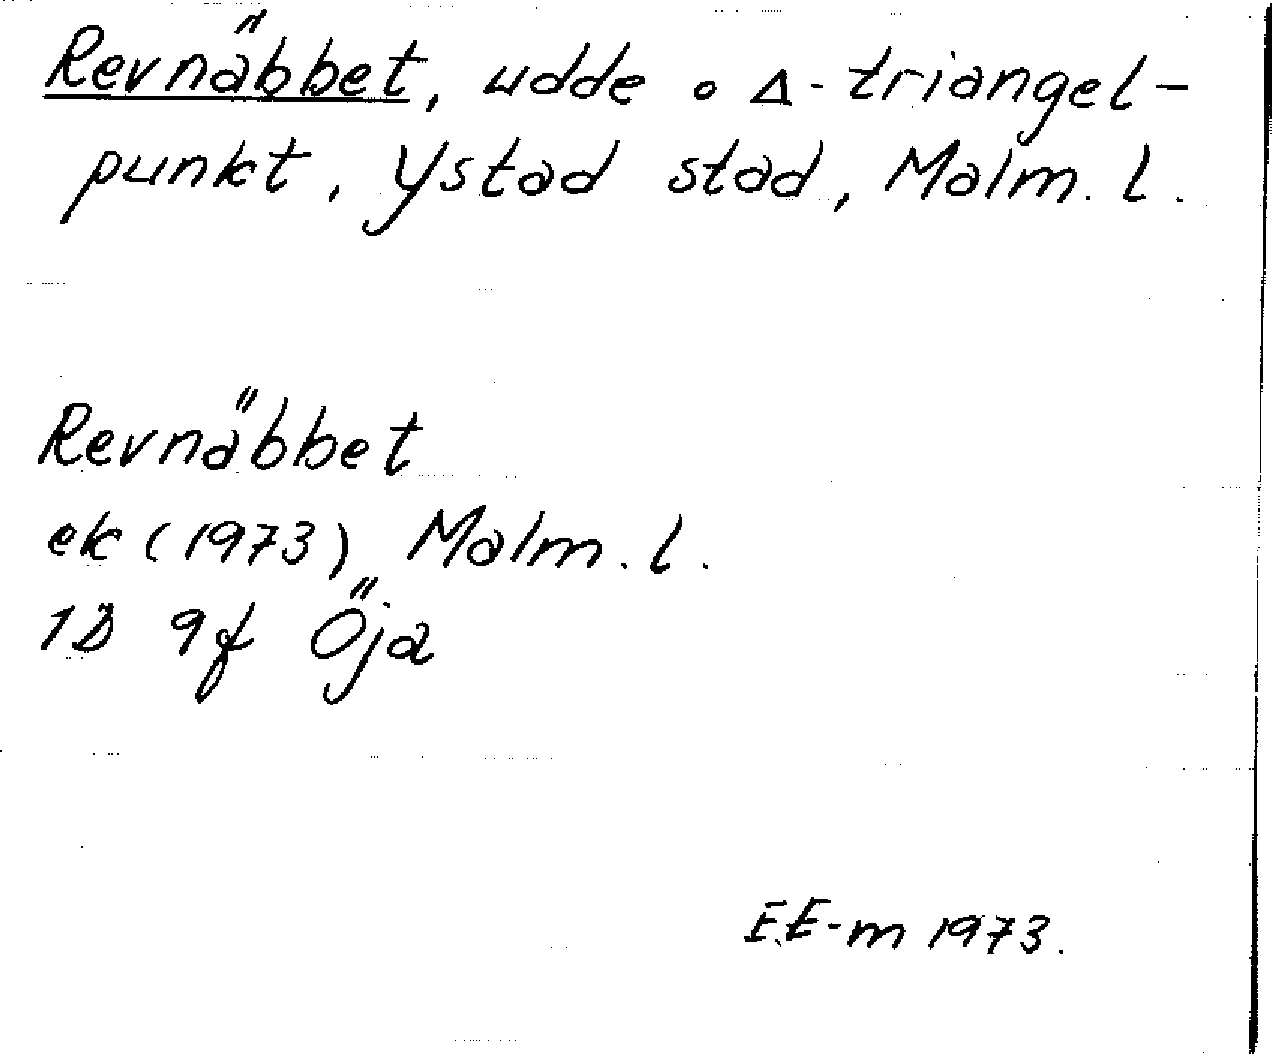 Revnäbbet, udde o Δ-triangel-
punkt, Ystad stad, Malm. l.
Revnäbbet
ek (1973) Malm. l.
1D 9f Öja
E.E-m 1973.